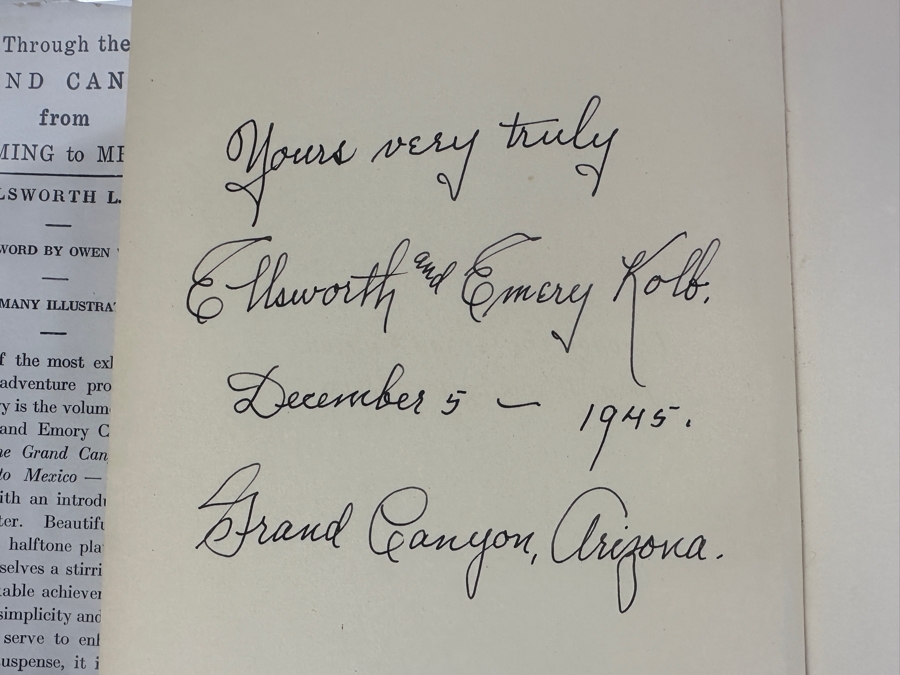 Through the
ND CAN
from
MING to ME
LSWORTH L.
WORD BY OWEN
MANY ILLUSTRA
f the most exl
adventure pro
y is the volum
and Emory C
he Grand Can
to Mexico —
ith an introdu
ter. Beautifu
halftone pla
selves a stirri
kable achiever
simplicity and
serve to enl
uspense, it i
Yours very truly
Ellsworth and Emery Kolb.
December 5 — 1945.
Grand Canyon, Arizona.